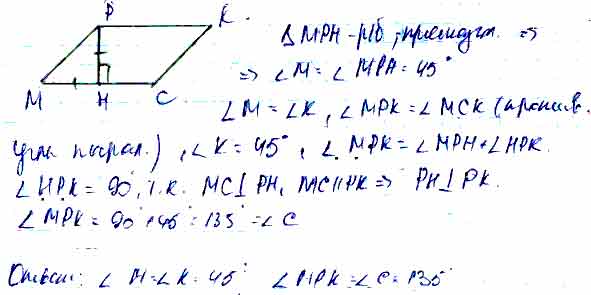 P K
M H C
△MPH - р/б, прямоуг. ⇒
⇒ ∠M = ∠MPH = 45°
∠M = ∠K, ∠MPK = ∠MCK (против.
углы парал.), ∠K = 45°, ∠MPK = ∠MPH + ∠HPK.
∠HPK = 90°, т.к. MC ⊥ PH, MC || PK ⇒ PH ⊥ PK.
∠MPK = 90° + 45° = 135° = ∠C
Ответ: ∠M = ∠K = 45° ∠MPK = ∠C = 135°